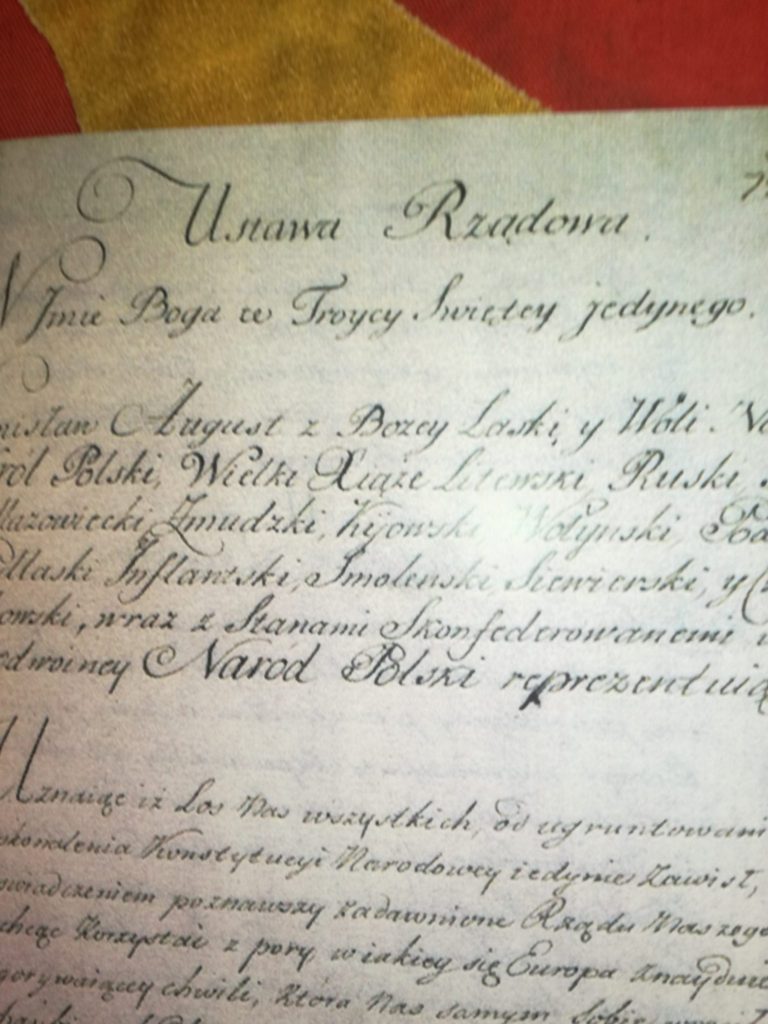 Ustawa Rządowa.
W Jmie Boga w Troycy Swiętey jedynego.
nisław August z Bozey Laski, y Woli Na
ról Polski, Wielki Xiąże Litewski, Ruski,
Mazowiecki, Zmudzki, Kijowski, Wołynski, Po
dlaski Inflantski, Smolenski, Siewierski, y C
owski, wraz z Stanami Skonfederowanemi w
odwoiney Naród Polski reprezentuią
Uznaiąc iż Los Nas wszystkich, od ugruntowani
skonalenia Konstytucyi Narodowey iedynie zawisł,
oswiadczeniem poznawszy zadawnione Rządu Naszego
chcąc korzystać z pory, w iakiey się Europa znayduie
gorywaiącey chwili, która Nas samym Sobie